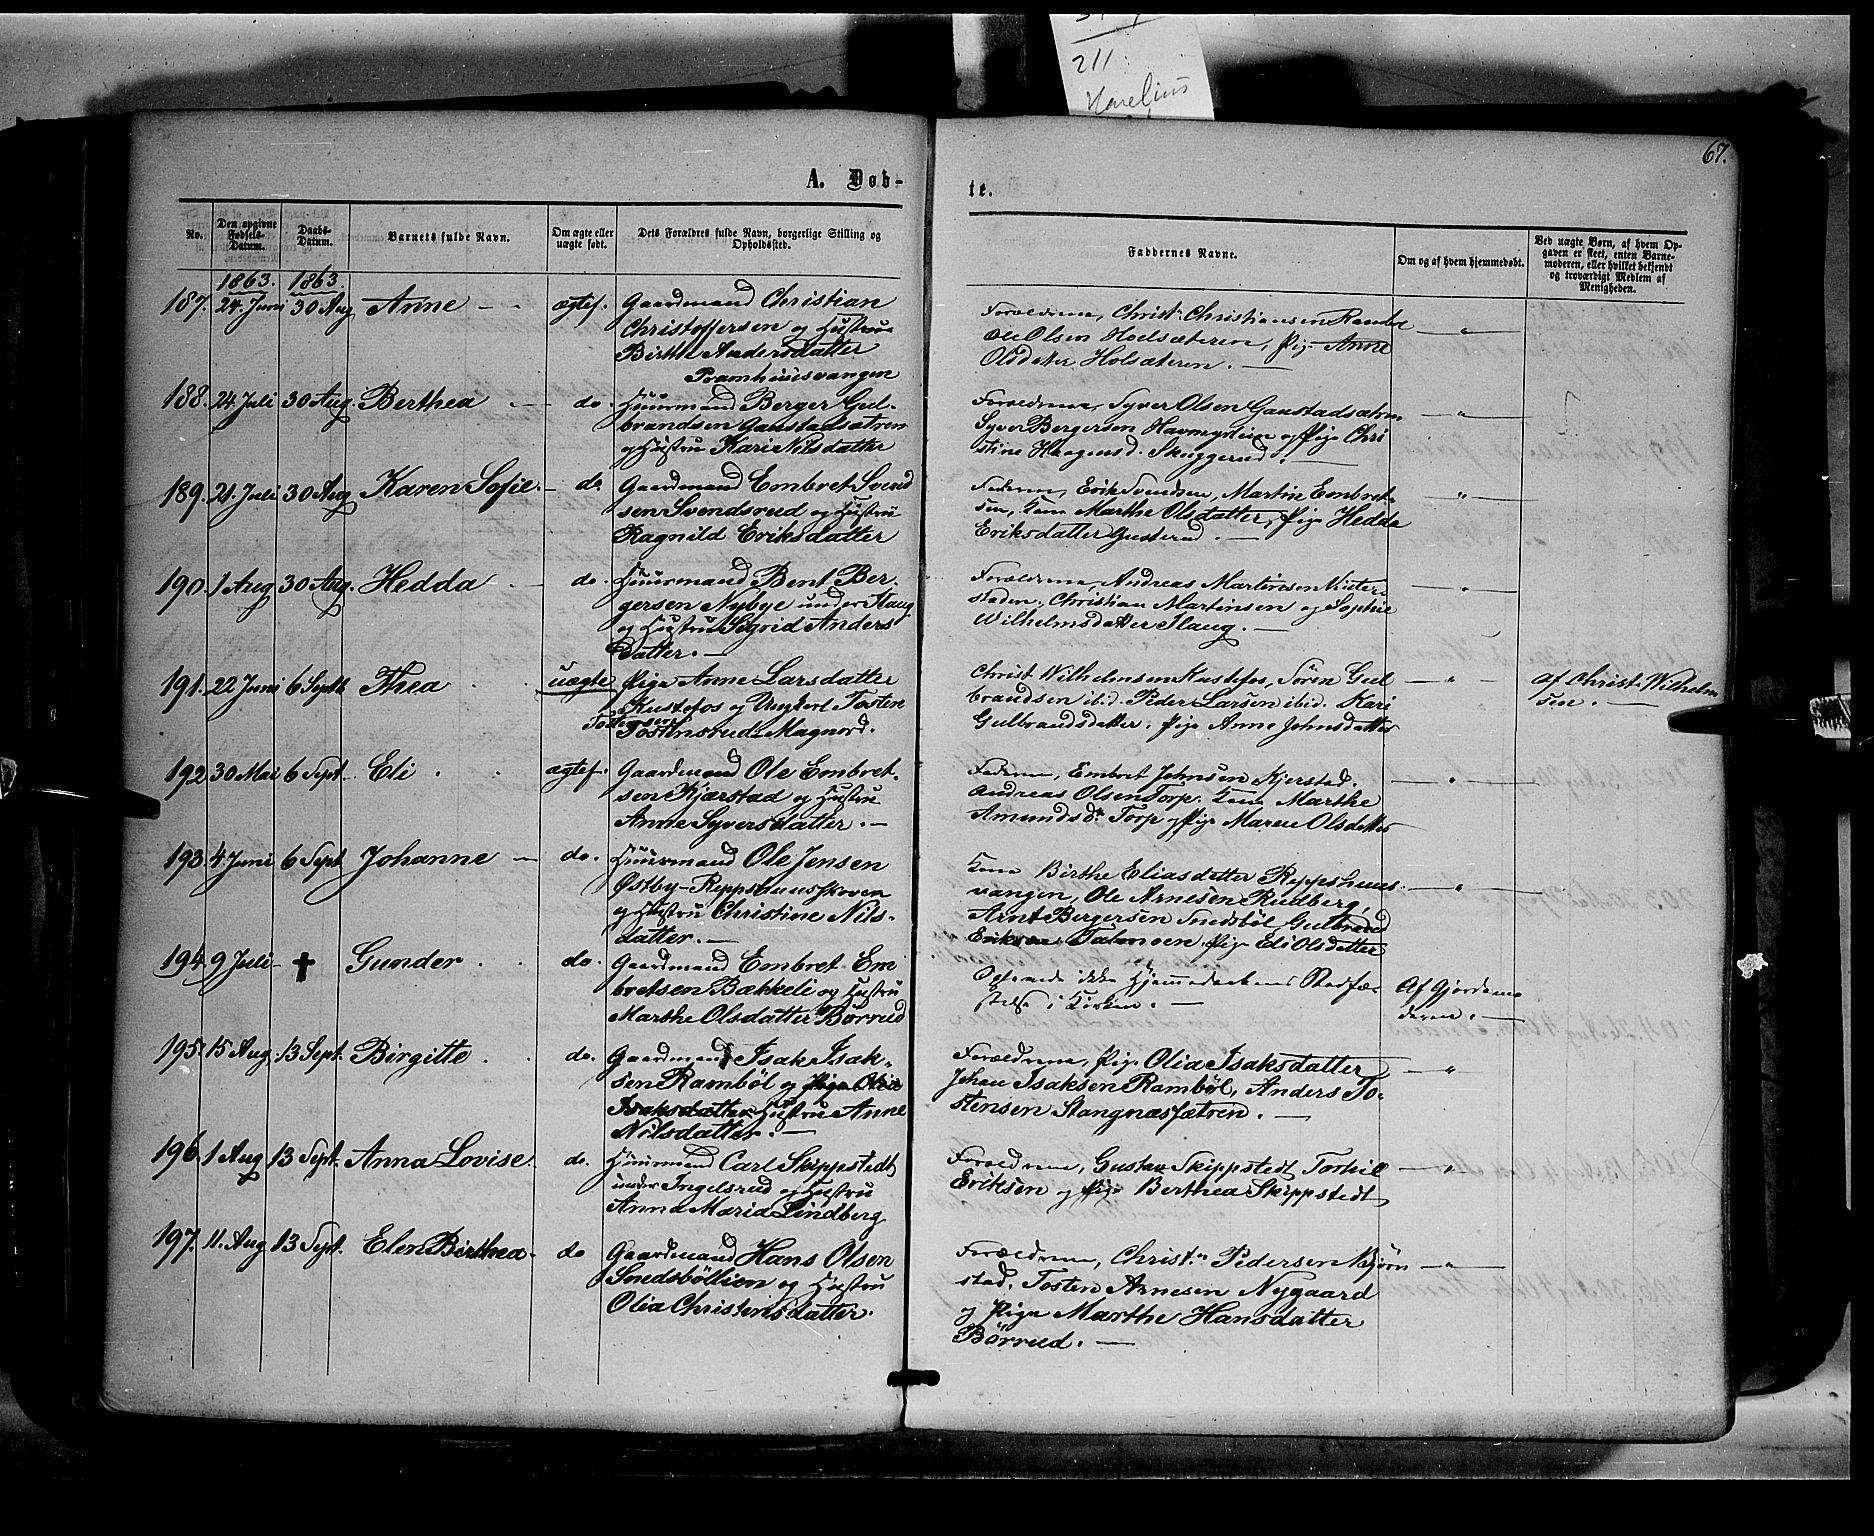 211.
67.
A. Døb-
te.
No.
Den opgivne Fødsels-Datum.
Daabs-Datum.
Barnets fulde Navn.
Om ægte eller uægte født.
Dets Forældres fulde Navn, borgerlige Stilling og Opholdssted.
Faddernes Navne.
Om og af hvem hjemmedøbt.
Ved uægte Børn, af hvem Opgaven er skeet, enten Barnemoderen, eller hvilket bekjendt og troværdigt Medlem af Menigheden.
1863. 1863.
187. 24. Juni 30 Aug Anne — ægtef. Gaardmand Christian
Christoffersen og Hustru
Birthe Andersdatter
Pramhuusvangen
Forældrene, Christn Christiansen
Ole Olsen Holsæteren, Pige Anne
Olsdatter Holsæteren. —
188. 24 Juli 30 Aug. Berthea — do. Huusmand Berger Gul-
brandsen Gaustadsætren
og Hustru Kari Nilsdatter
Forældrene, Syver Olsen Gaustadsætren
Syver Bergersen og Pige Chri
stine Haagensd. Skuggerud. —
189. 21. Juli 30 Aug Karen Sofie. — do. Gaardmand Embret Svend
sen Svendsrud og Hustru
Ragnild Eriksdatter
Faderen, Erik Svendsen, Martin Embret-
sen, Kone Marthe Olsdatter, Pige Hedda
Eriksdatter Gusterud. —
190. 1 Aug 30 Aug. Hedda — do. Huusmand Bent Ber-
gersen Nybye under Haug
og Hustru Sigrid Anders
datter. —
Forældrene, Andreas Martinsen Vinter-
staden, Christian Martinsen og Sophie
Wilhelmsdatter Haug. —
191. 22 Juni 6 Septb Thea uægte Pige Anne Larsdatter
Kustefos og Ungkarl Tosten
Tostensen
Tostensrud Magnord.
Christ. Wilhelmsen Kustefos, Søren Gul
brandsen ibid. Peder Larsen ibid. Kari
Gulbrandsdatter. Pige Anne Johnsdatter
af Christn Wilhelm
sen. —
192 30 Mai 6 Sept. Eli ægtef. Gaardmand Ole Embret-
sen Kjærstad og Hustru
Anne Syversdatter. —
Faderen, Embret Johnsen Kjerstad.
Andreas Olsen Torp. Kone Marthe
Amundsdr Torp og Pige Maren Olsdatter
193. 4 Juni 6 Sept Johanne — do. Huusmand Ole Jensen
Østby-Reppshuusskoven
og Hustru Christine Nils-
datter. —
Kone Birthe Eliasdatter Reppshuus-
vangen, Ole Arnesen Rudberg,
Arnt Bergersen Snedsbøl, Gulbrand
Eriksen Talmoen, Pige Eli Olsdatter
194. 9 Juli — † Gunder do. Gaardmand Embret Em
bretsen Bækkeli og Hustru
Marthe Olsdatter Børrud
Oplevede ikke Hjemmedaabens Stadfæ-
stelse i Kirken. —
Af Gjordemo
deren. —
195. 15 Aug. 13 Sept. Birgitte do. Gaardmand Isak Isak-
sen Rambøl og Pige Olia
Isaksdatter Hustru Anne
Nilsdatter. —
Forældrene, Pige Olia Isaksdatter
Johan Isaksen Rambøl, Anders To-
stensen Stangnæssætren. —
196. 1 Aug 13 Sept. Anna Lovise. do. Huusmand Carl Skippstedt
under Ingelsrud og Hustru
Anna Maria Lindberg
Forældrene, Gustav Skippstedt Torkil
Eriksen og Pige Berthea Skippstedt
197. 11. Aug 13 Sept. Elen Birthea. do Gaardmand Hans Olsen
Snedsböllien og Hustru
Olia Christensdatter.
Forældrene, Christn Pedersen Bjørn
stad, Tosten Arnesen Nygaard
og Pige Marthe Hansdatter
Børrud. —